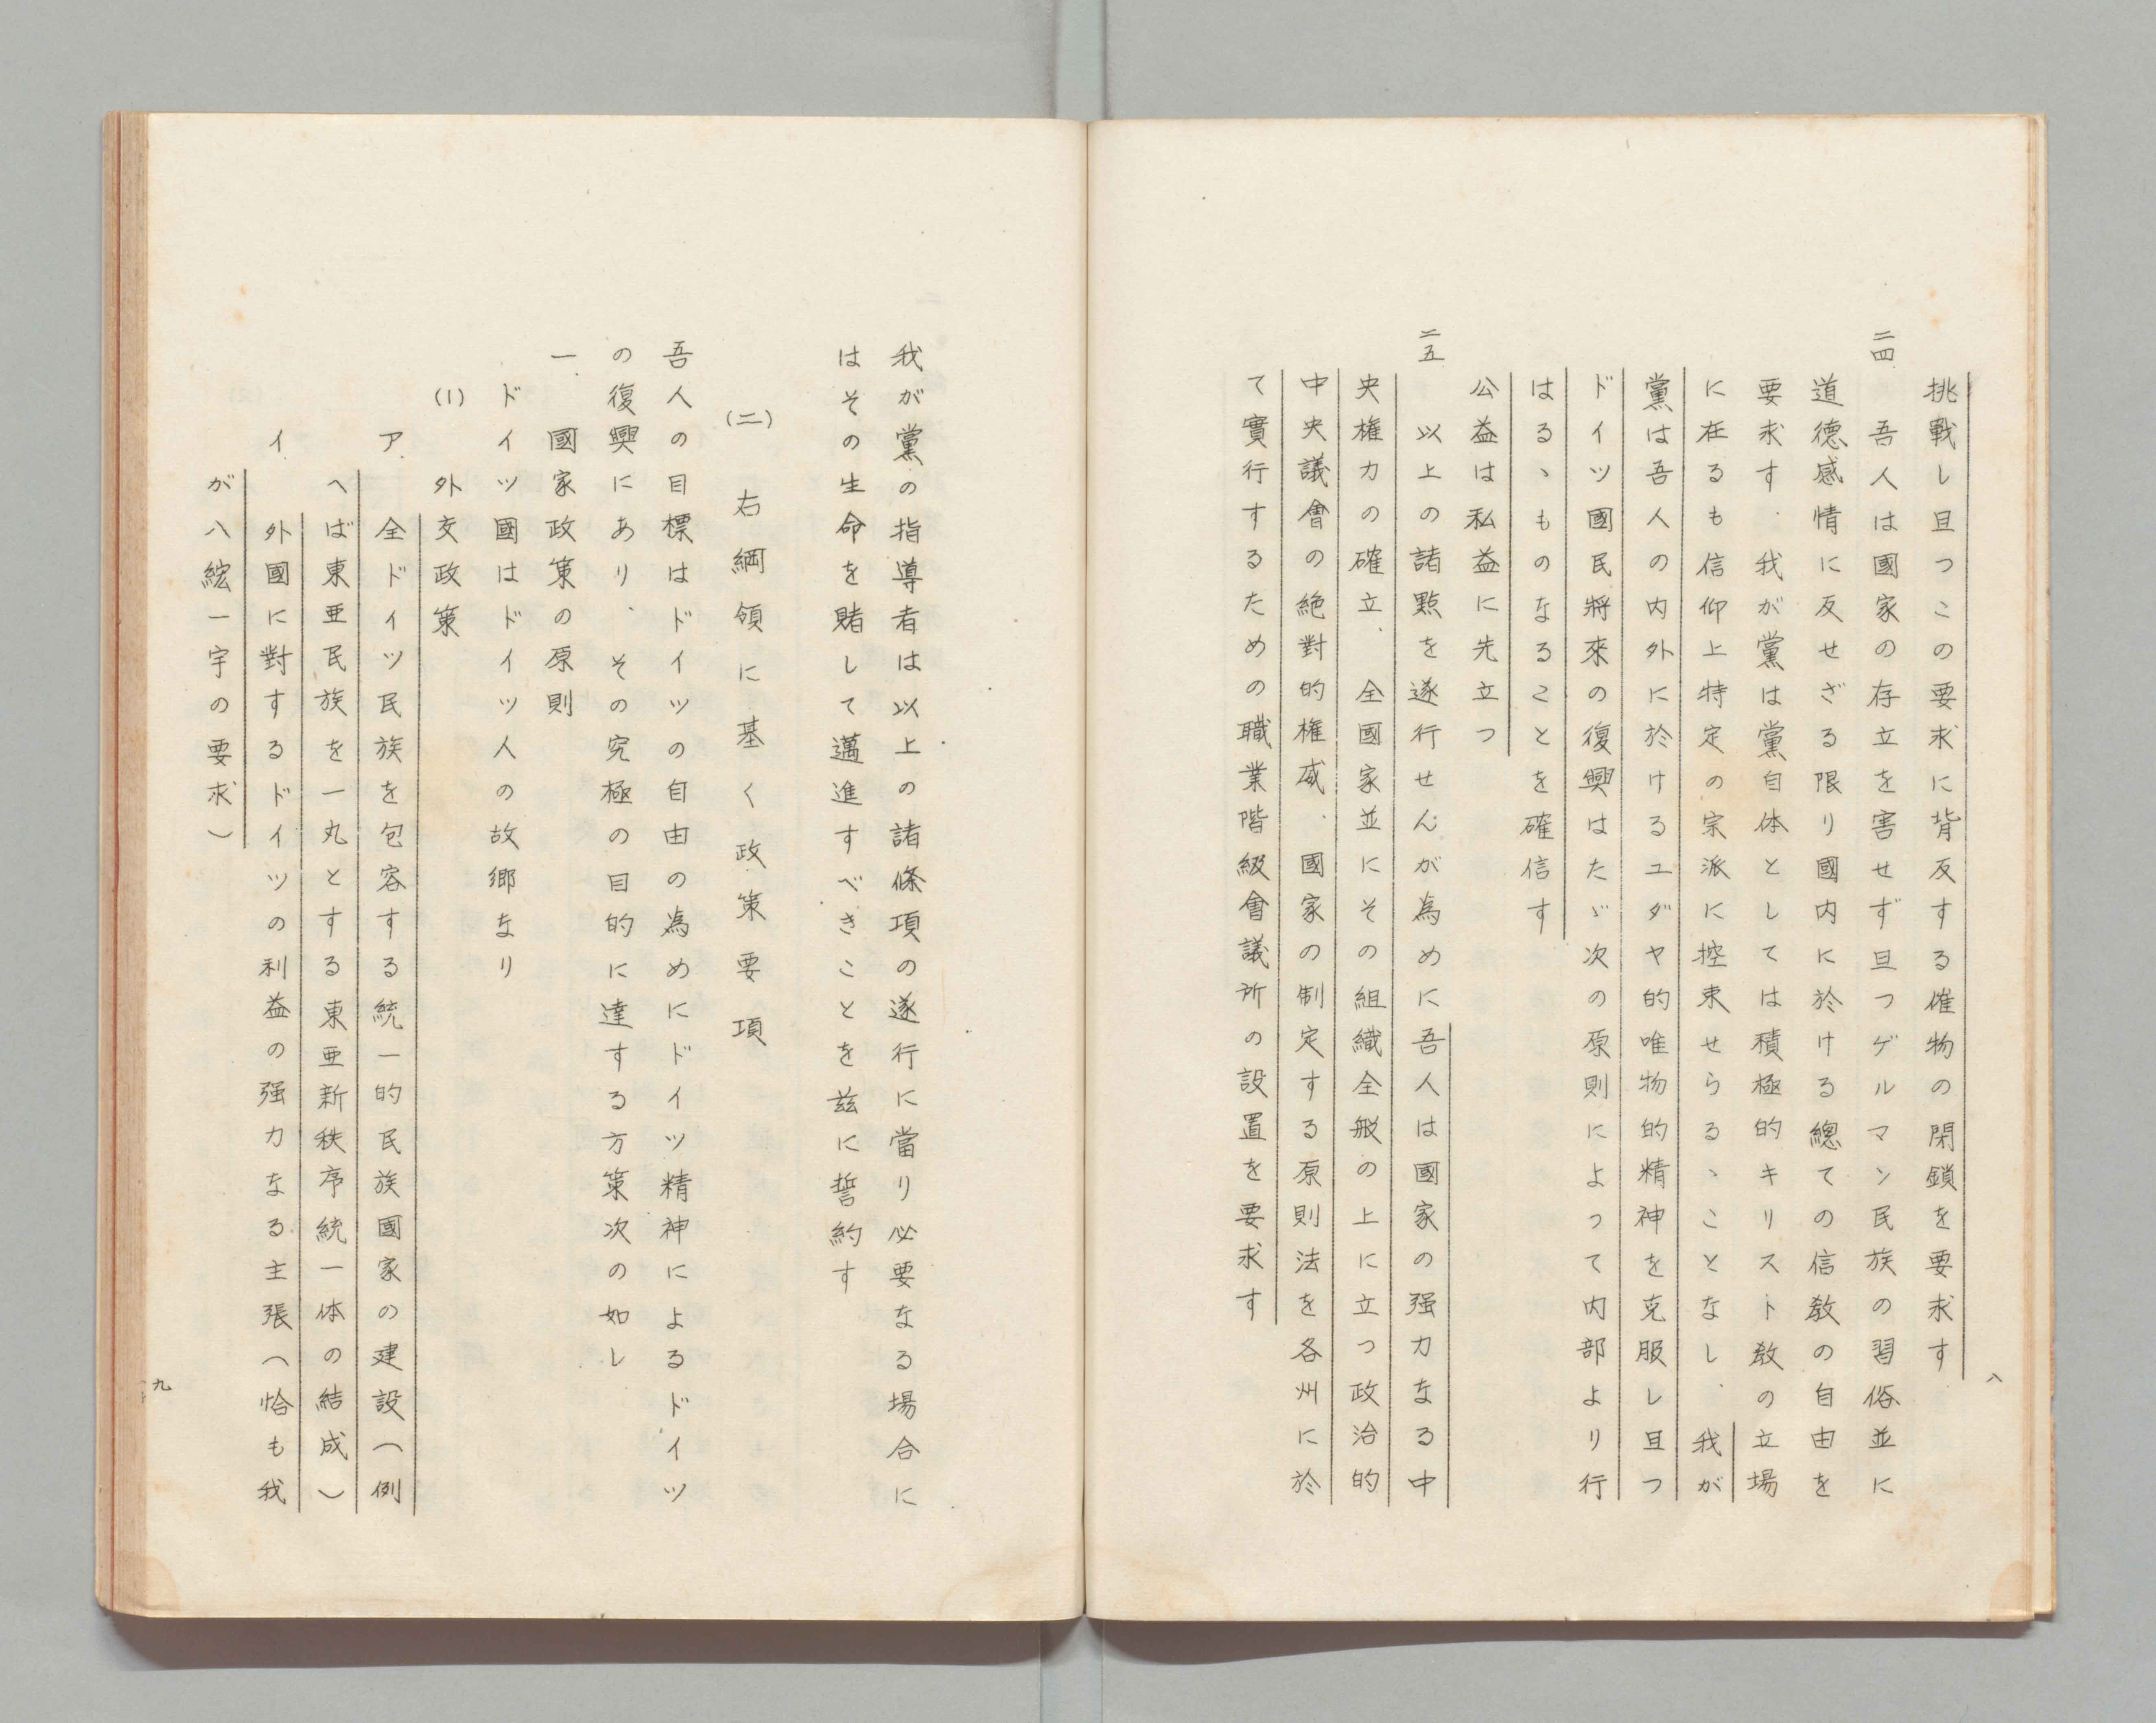 挑戰し且つこの要求に背反する催物の閉鎖を要求す
二四 吾人は國家の存立を害せず且つゲルマン民族の習俗並に
道德感情に反せざる限り國内に於ける總ての信教の自由を
要求す．我が黨は黨自体としては積極的キリスト教の立場
に在るも信仰上特定の宗派に控束せらるゝことなし．我が
黨は吾人の内外に於けるユダヤ的唯物的精神を克服し且つ
ドイツ國民將來の復興はたゞ次の原則によって内部より行
はるゝものなることを確信す
公益は私益に先立つ
二五 以上の諸點を遂行せんが為めに吾人は國家の强力なる中
央権力の確立．全國家並にその組織全般の上に立つ政治的
中央議會の絶對的権威．國家の制定する原則法を各州に於
て實行するための職業階級會議所の設置を要求す
八
我が黨の指導者は以上の諸條項の遂行に當り必要なる場合に
はその生命を賭して邁進すべきことを茲に誓約す
(二) 右綱領に基く政策要項
吾人の目標はドイツの自由の為めにドイツ精神によるドイツ
の復興にあり．その究極の目的に達する方策次の如し
一．國家政策の原則
ドイツ國はドイツ人の故郷なり
(1) 外交政策
ア．全ドイツ民族を包容する統一的民族國家の建設(例
へば東亜民族を一丸とする東亜新秩序統一体の結成)
イ．外國に對するドイツの利益の强力なる主張(恰も我
が八紘一宇の要求)
九